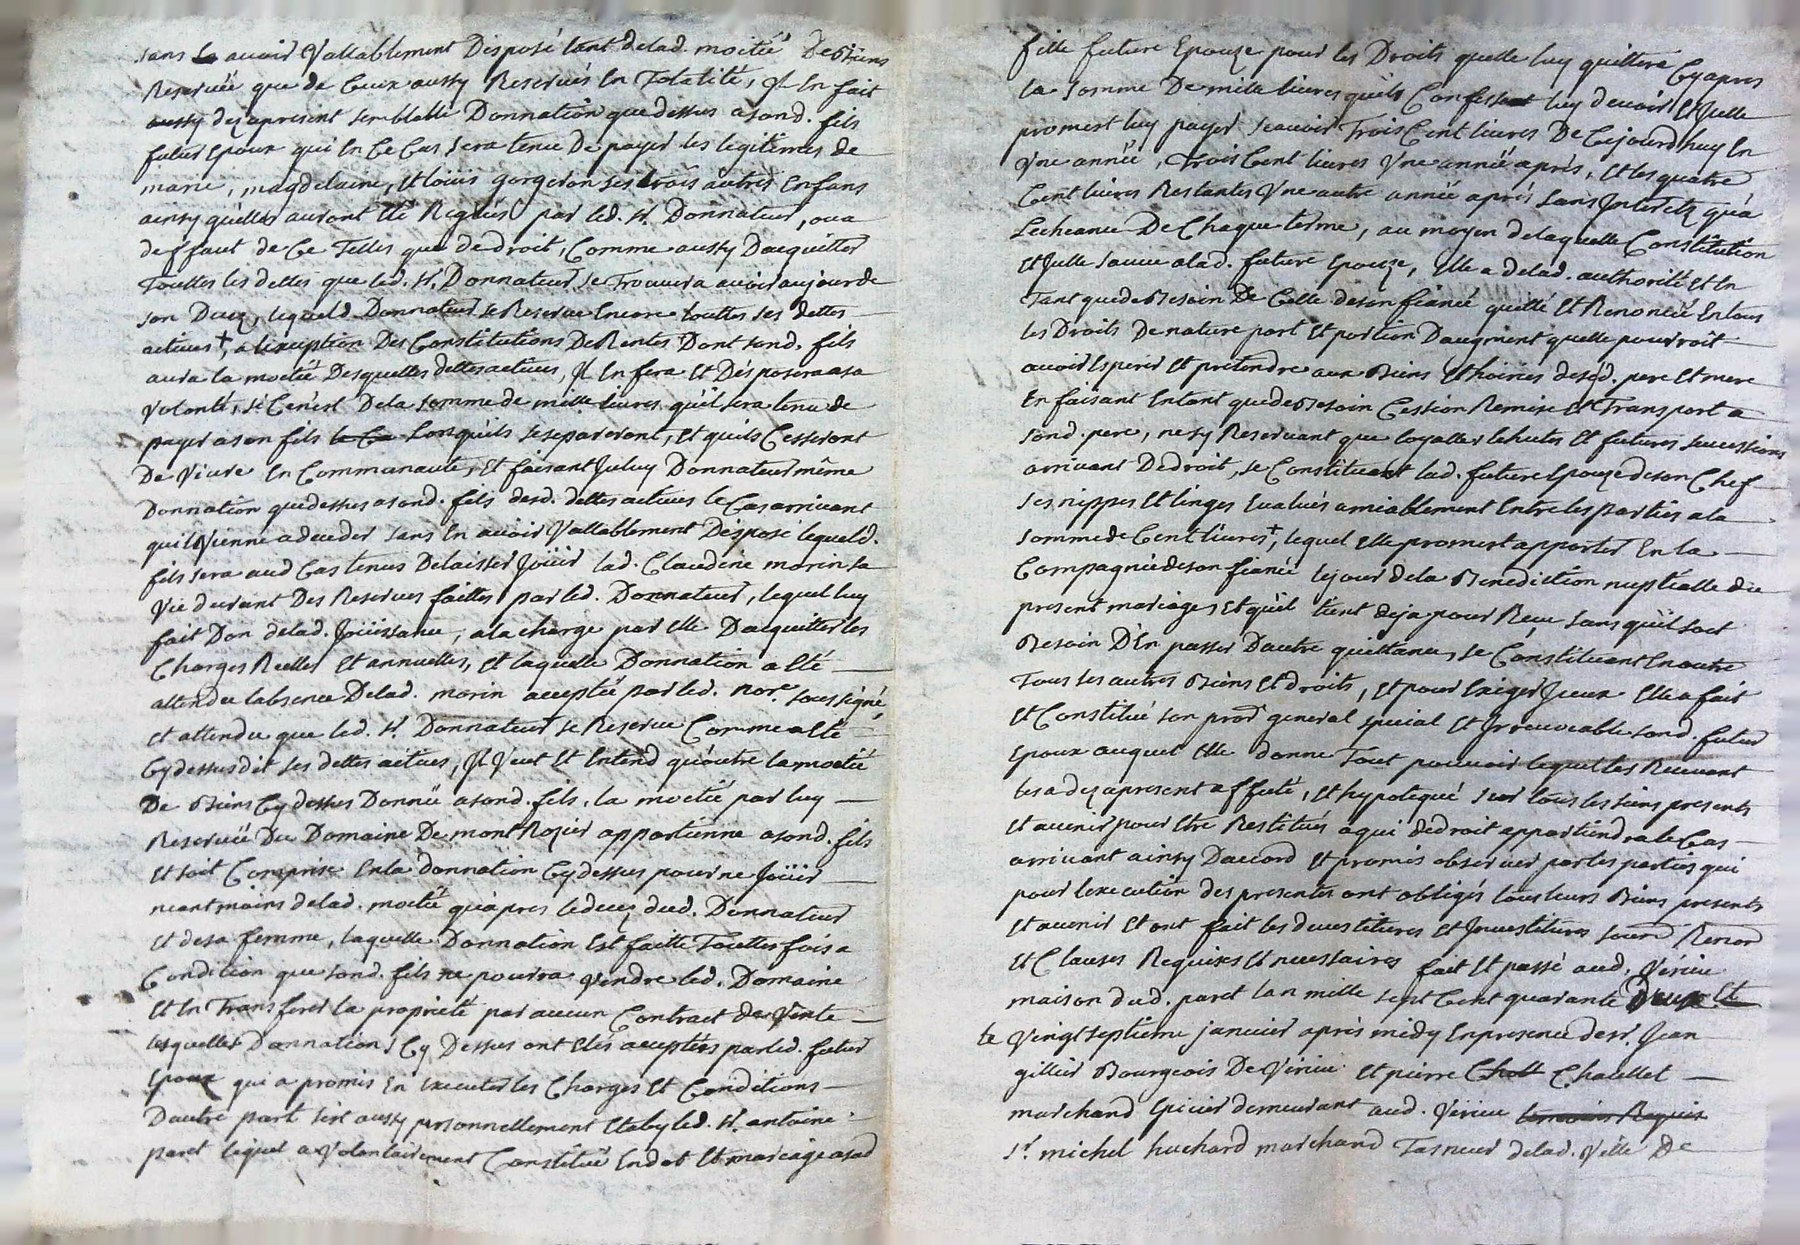 sans en avoir Vallablement Disposé tant delad. moitié De Biens
Reservée que de Ceux aussy Reservés En Totalité, Il En fait
aussy dez apresent semblable Donnation que dessus asond. fils
futur Epoux qui En Ce Cas sera tenu De payer les legitimes de
marie, magdelaine, Et loüis gorgeron ses trois autres Enfans
ainsy quelles auront Eté Reglées par led. Sr. Donnateur, ou a
deffaut de Ce Telles que de droit, Comme aussy Dacquitter
Touttes les dettes que led. Sr. Donnateur se Trouvera avoir aujour de
son Decez, lequel d. Donnateur se Reserve Encore touttes ses dettes
actives +, a lexception Des Constitutions De Rentes Dont sond. fils
aura la moitié Desquelles dettes actives, Il En fera Et Disposera a sa
Volonté, si Cen'est De la somme de mille livres qu'il sera tenu de
payer a son fils le Ca Lorsquils se separeront, Et quils Cesseront
De Vivre En Communauté, Et faisant Iceluy Donnateur même
Donnation que dessus asond. fils desd. dettes actives le Cas arrivant
quil Vienne a deceder sans En avoir Vallablement Disposé lequel d.
fils sera aud Cas tenus De laisser Joüir lad. Claudine morin sa
Vie durant Des Reserves faittes par led. Donnateur, lequel luy
fait Don delad. Joüissance, ala charge par Elle Dacquitter les
Charges Reelles Et annuelles, Et laquelle Donnation a Eté
attendu labsence Delad. morin acceptée par led. nore. soussigné,
Et attendu que led. Sr. Donnateur se Reserve Comme a Eté
Cy dessus dit ses dettes actives, Il Veut Et Entend qu'outre la moitié
De Biens Cy dessus Donnée asond. fils, la moitié par luy
Reservée Du Domaine De mont Rozier appartienne asond. fils
Et soit Comprise En la donnation Cy dessus pour ne Joüir
neantmoins delad. moitié quapres le decez dud. Donnateur
Et de sa femme, laquelle Donnation Est faitte Touttes fois a
Condition que sond. fils ne pourra Vendre led. Domaine
Et En Transferer la proprieté par aucun Contract de Vente
lesquelles Donnations Cy Dessus ont Etés acceptées par led. futur
Epoux qui a promis En Executer les Charges Et Conditions
Dautre part s'est aussy personnellement Etably led. Sr. antoine
paret lequel a Volontairement Constitué En dot Et mariage asad
fille future Epouze pour les Droits quelle luy quittera Cy apres
la somme De mille livres quils Confessent luy devoir Et Icelle
promest luy payer scavoir Trois Cent livres De Cejourdhuy En
Vne année, Trois Cent livres Vne année après, Et les quatre
Cent livres Restantes Vne autre année après sans Interets qu'a
Lecheance De Chaque terme, au moyen de laquelle Constitution
Et Icelle sauve alad. future Epouze, Elle a delad. authorité Et En
Tant que de Besoin De Celle de son fiancé quitté Et Renoncé En tous
les Droits De nature part Et portion Daugment quelle pourroit
avoir Esperer Et pretendre aux Biens Et hoiries desd. pere Et mere
En faisant En tant que de Besoin Cession Remise Et Transport a
sond. pere, ne sy Reservant que loyalles Echutes Et futures successions
arrivant De droit, se Constituant lad. future Epouze de son Chef
ses nippes Et linges Evalués amiablement Entre les parties a la
somme de Cent livres +, lequel Elle promest apporter En la
Compagnie de son fiancé le jour de la Benediction nuptialle du
present mariage, Et qu'il tient deja pour Reçu sans qu'il soit
Besoin D'En passer Dautre quittance, se Constituant En outre
Tous ses autres Biens Et droits, Et pour Exiger Iceux Elle a fait
Et Constitué son procr. general special Et Irrevocable sond. futur
Epoux auquel Elle donne Tout pouvoir lequel les Recevant
les a dez apresent affecté, Et hypotequé sur tous les siens presents
Et avenir pour Etre Restitués a qui de droit appartiendra le Cas
arrivant ainsy Daccord Et promis observer par les parties qui
pour lexecution des presentes ont obligés tous leurs Biens presents
Et avenir Et ont fait les devestitures Et Investitures sous Renon
Et Clauses Requises Et necessaires fait Et passé aud. Virieu
maison dud. paret lan mille sept Cent quarante Deux Et
le Vingt septieme janvier après midy En presence de Sr. Jean
gillier Bourgeois De Virieu Et pierre Chatt Chatellet
marchand Epicier demeurant aud. Virieu temoins Requis
Sr. michel huchard marchand Tasneur delad. Ville De